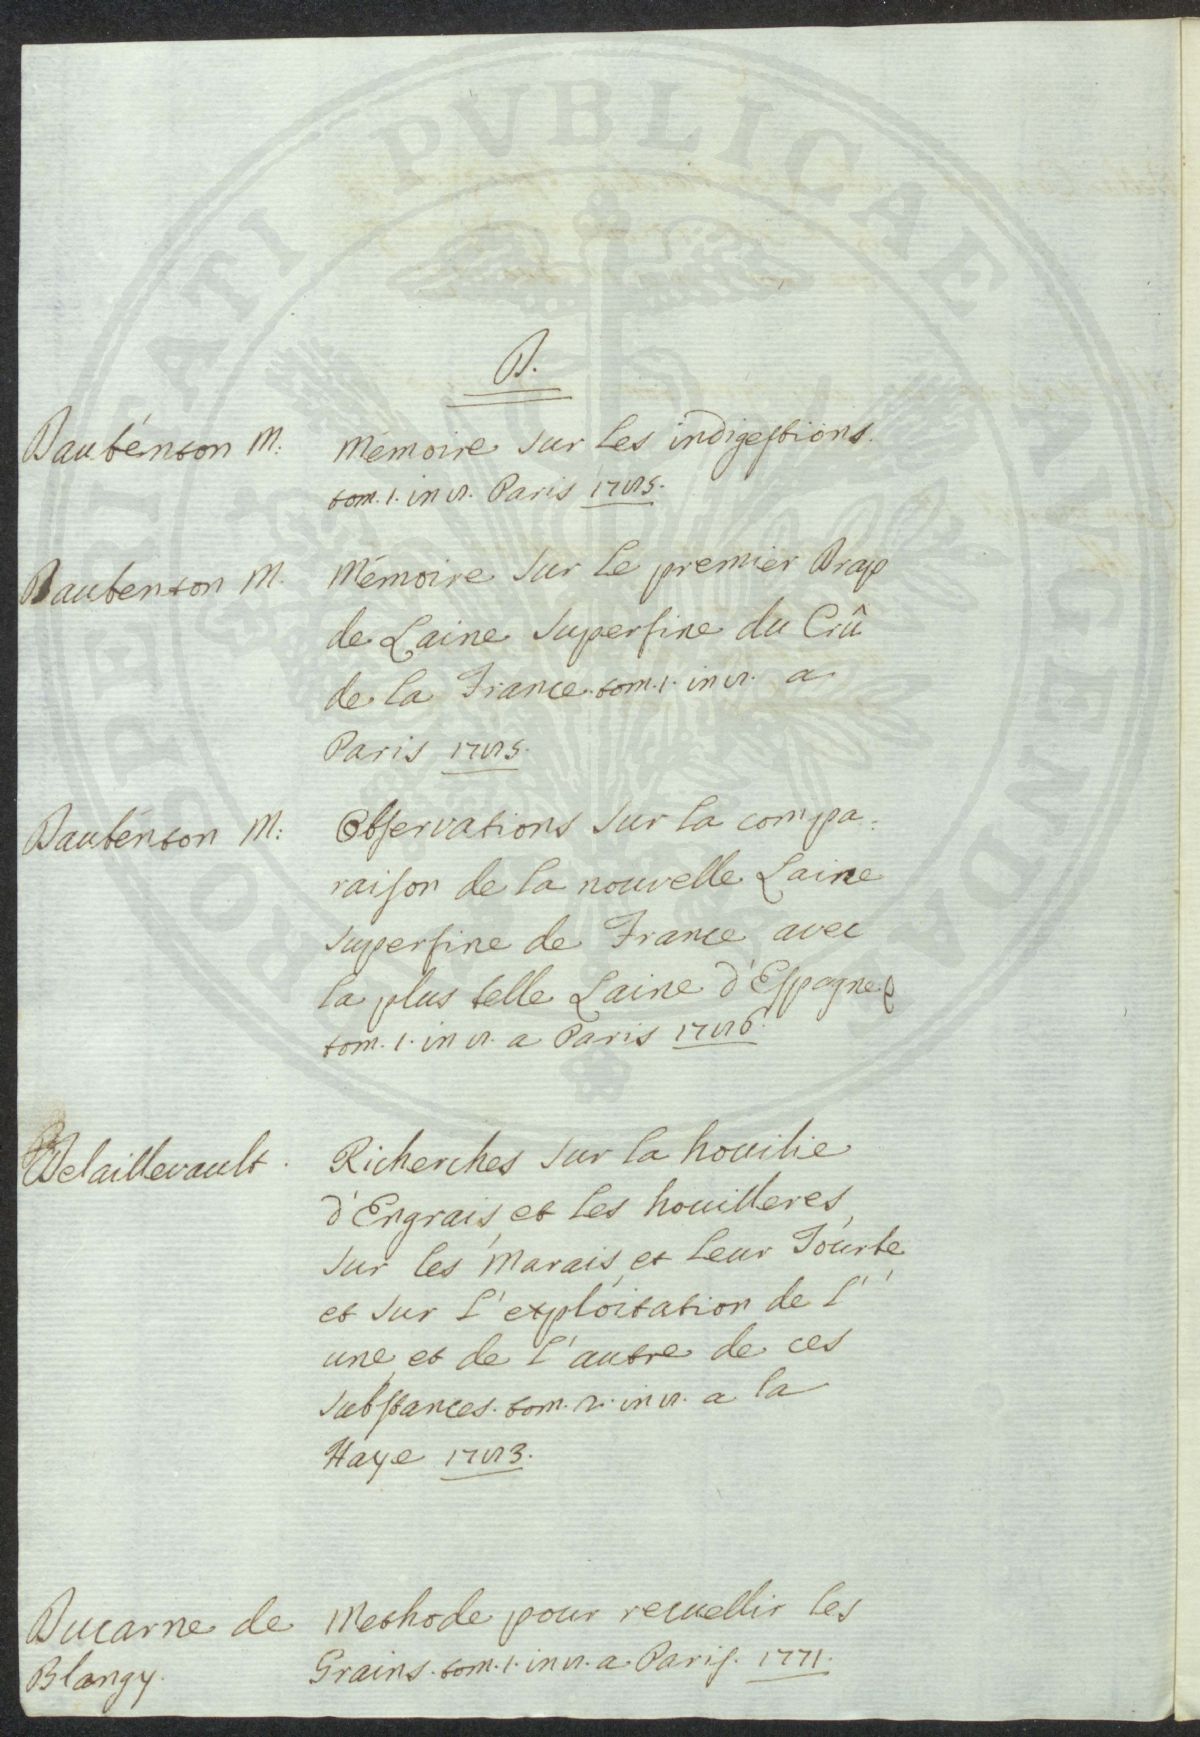 D.
Daubénton M: Mémoire sur les indigestions.
tom. 1. in 8. Paris 1785.
Daubenton M. Mémoire sur le premier Drap
de Laine superfine du Crû
de la France. tom. 1. in 8. a
Paris 1785.
Daubénton M: Observations sur la compa:
raison de la nouvelle Laine
superfine de France avec
la plus belle Laine d'Espagne.
tom. 1. in 8. a Paris 1786.
Delaillevault. Richerches sur la houilie
d'Engrais, et les houilleres,
sur les Marais, et leur Tourbe
et sur l'exploitation de l'
une, et de l'autre de ces
substances. tom. 2. in 8. a la
Haye 1783.
Ducarne de Methode pour recuellir les
Blangy. Grains. tom. 1. in 8. a Paris. 1771.